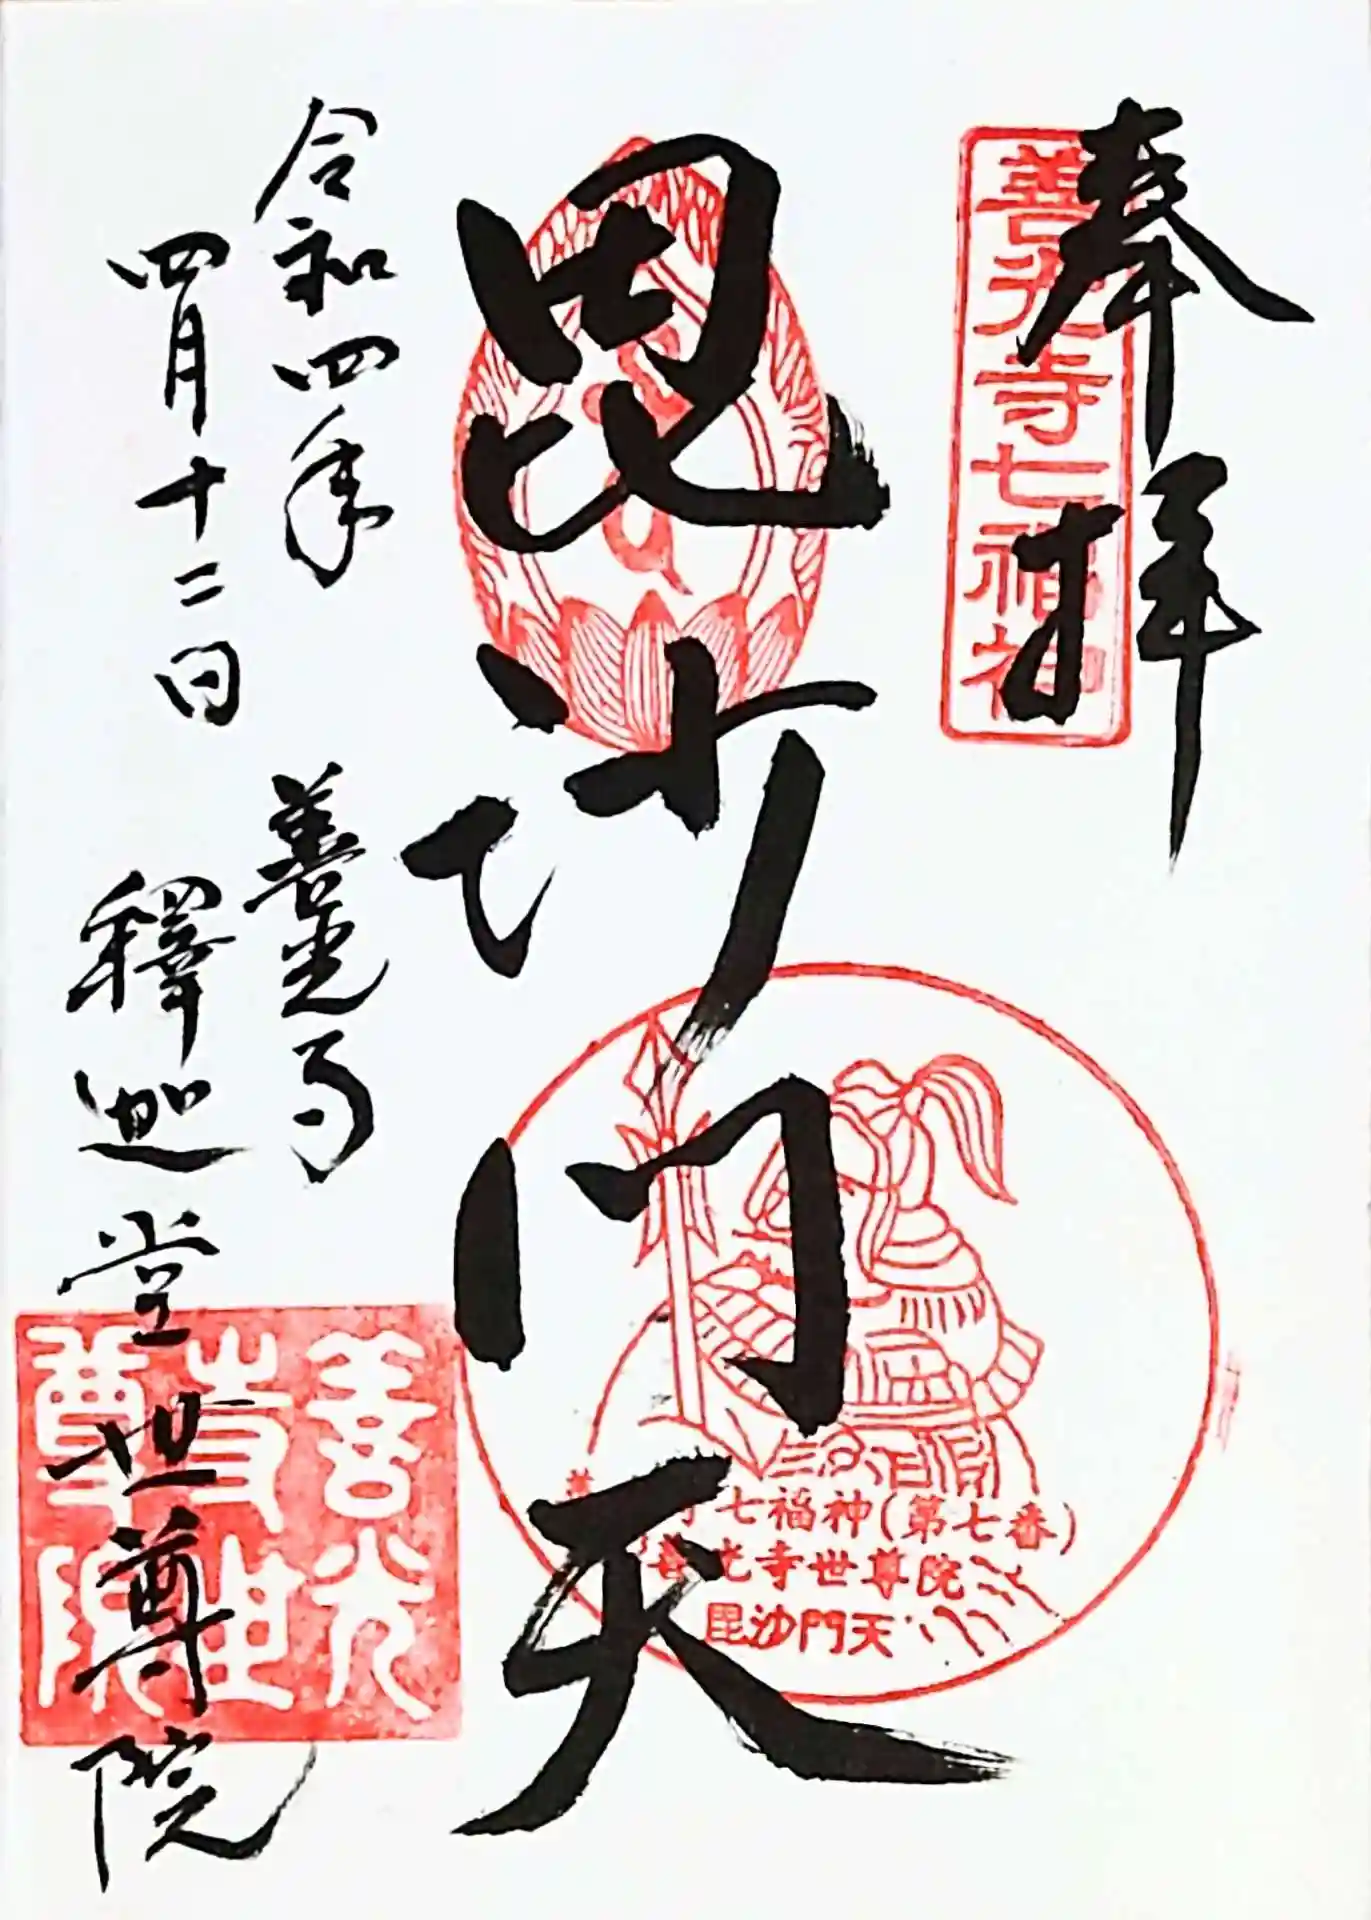 奉拝
善光寺七福神
毘沙門天
寺七福神(第七番)
善光寺世尊院
毘沙門天
令和四年
四月十二日
善光寺
釋迦堂世尊院
善光
寺世
尊院